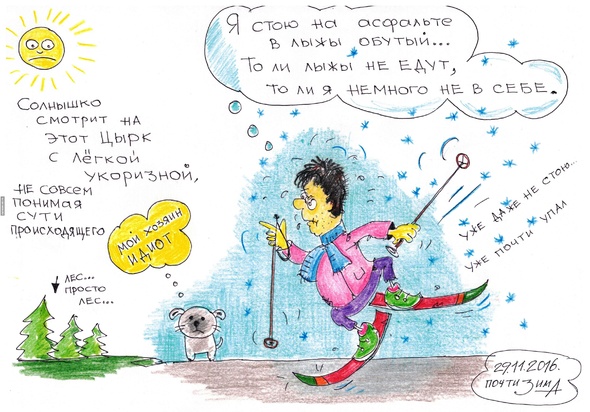 Я стою на асфальте
в лыжы обутый...
То ли лыжы не едут,
то ли я немного не в себе.
Солнышко
смотрит на
этот цырк
с лёгкой
укоризной,
не совсем
понимая
сути
происходящего
мой хозяин
идиот
лес...
просто
лес...
уже даже не стою...
уже почти упал
29.11.2016.
почти зима